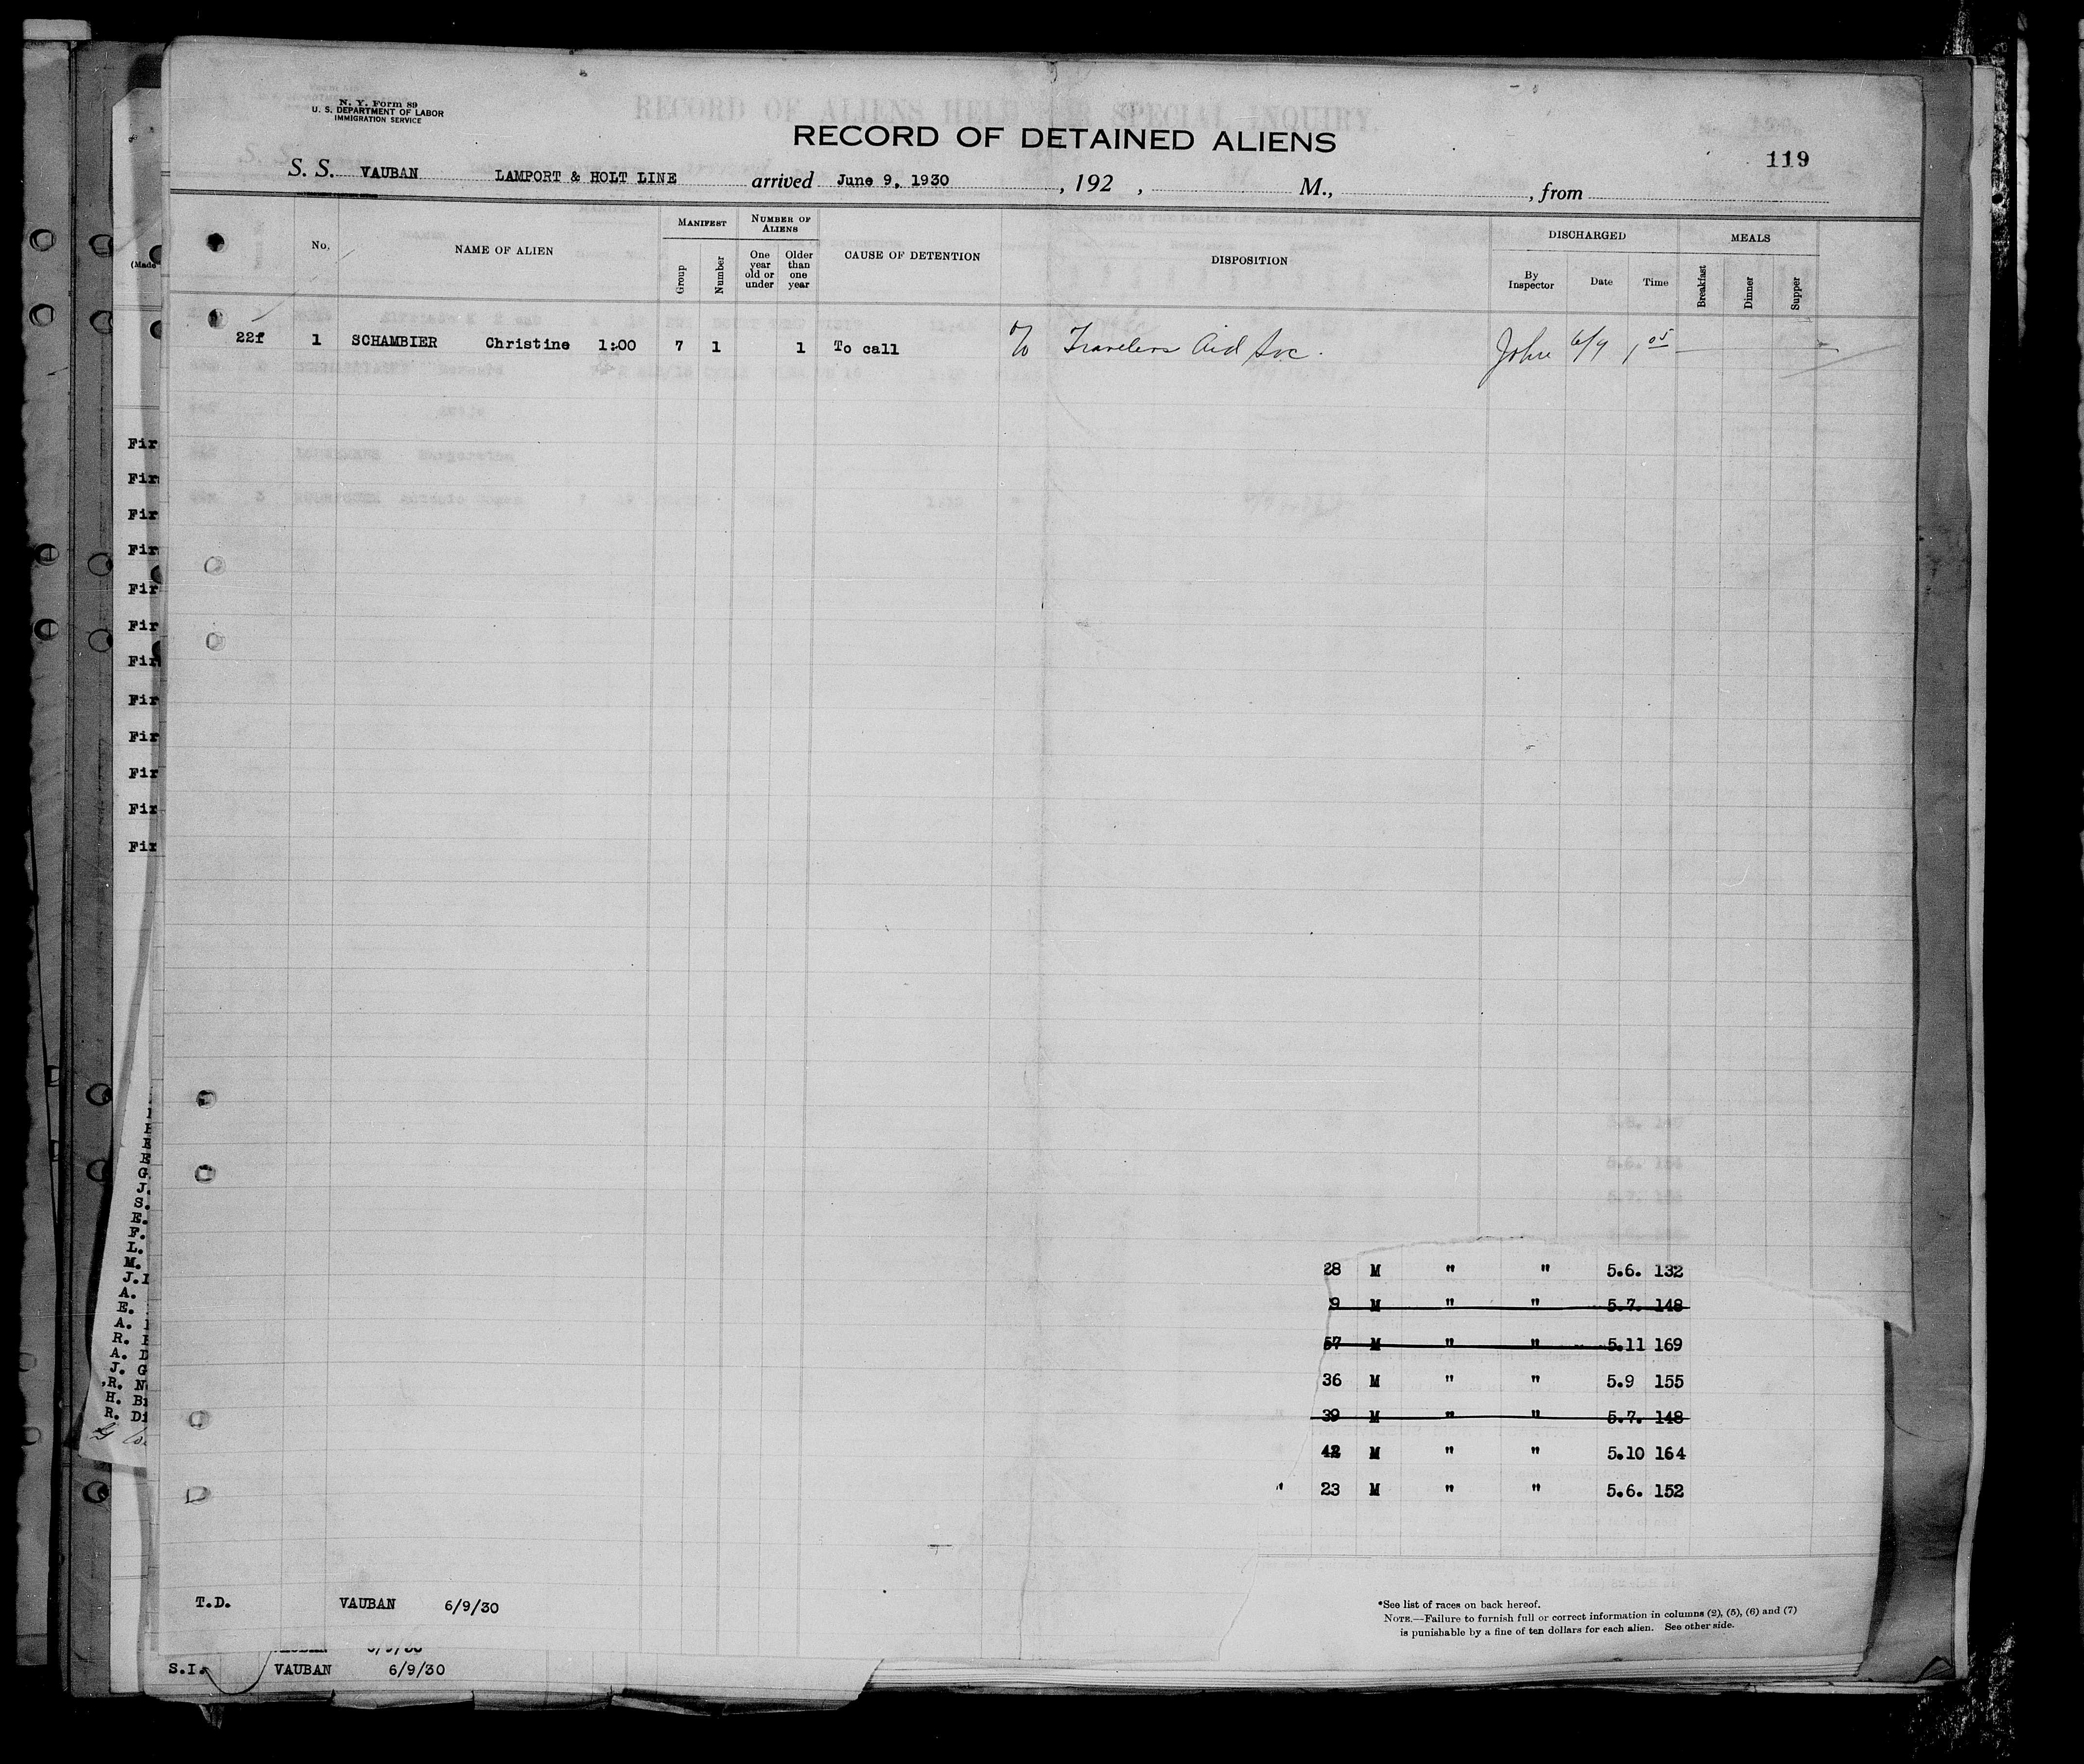 N. Y. Form 89
U. S. DEPARTMENT OF LABOR
IMMIGRATION SERVICE
RECORD OF ALIENS HELD FOR SPECIAL INQUIRY.
RECORD OF DETAINED ALIENS
119
S. S. VAUBAN LAMPORT & HOLT LINE arrived June 9, 1930 , 192 , M., , from
No. NAME OF ALIEN MANIFEST Group Number NUMBER OF ALIENS One year old or under Older than one year CAUSE OF DETENTION DISPOSITION DISCHARGED By Inspector Date Time MEALS Breakfast Dinner Supper
22f 1 SCHAMBIER Christine 1:00 7 1 1 To call Travelers Aid Soc. John 6/9 1 05
(Made
Fir
Fir
Fir
Fir
Fir
Fir
Fir
Fir
Fir
Fir
Fir
Fir
E
E
G
J.
S.
E.
F.
L.
M.
J.I
A.
E.
A.
R.
A. D
J. G
R. N
H. B
R. Di
28 M " " 5.6. 132
9 M " " 5.7. 148
57 M " " 5.11 169
36 M " " 5.9 155
39 M " " 5.7. 148
42 M " " 5.10 164
" 23 M " " 5.6. 152
*See list of races on back hereof.
NOTE.—Failure to furnish full or correct information in columns (2), (5), (6) and (7)
is punishable by a fine of ten dollars for each alien. See other side.
T.D. VAUBAN 6/9/30
S.I. VAUBAN 6/9/30